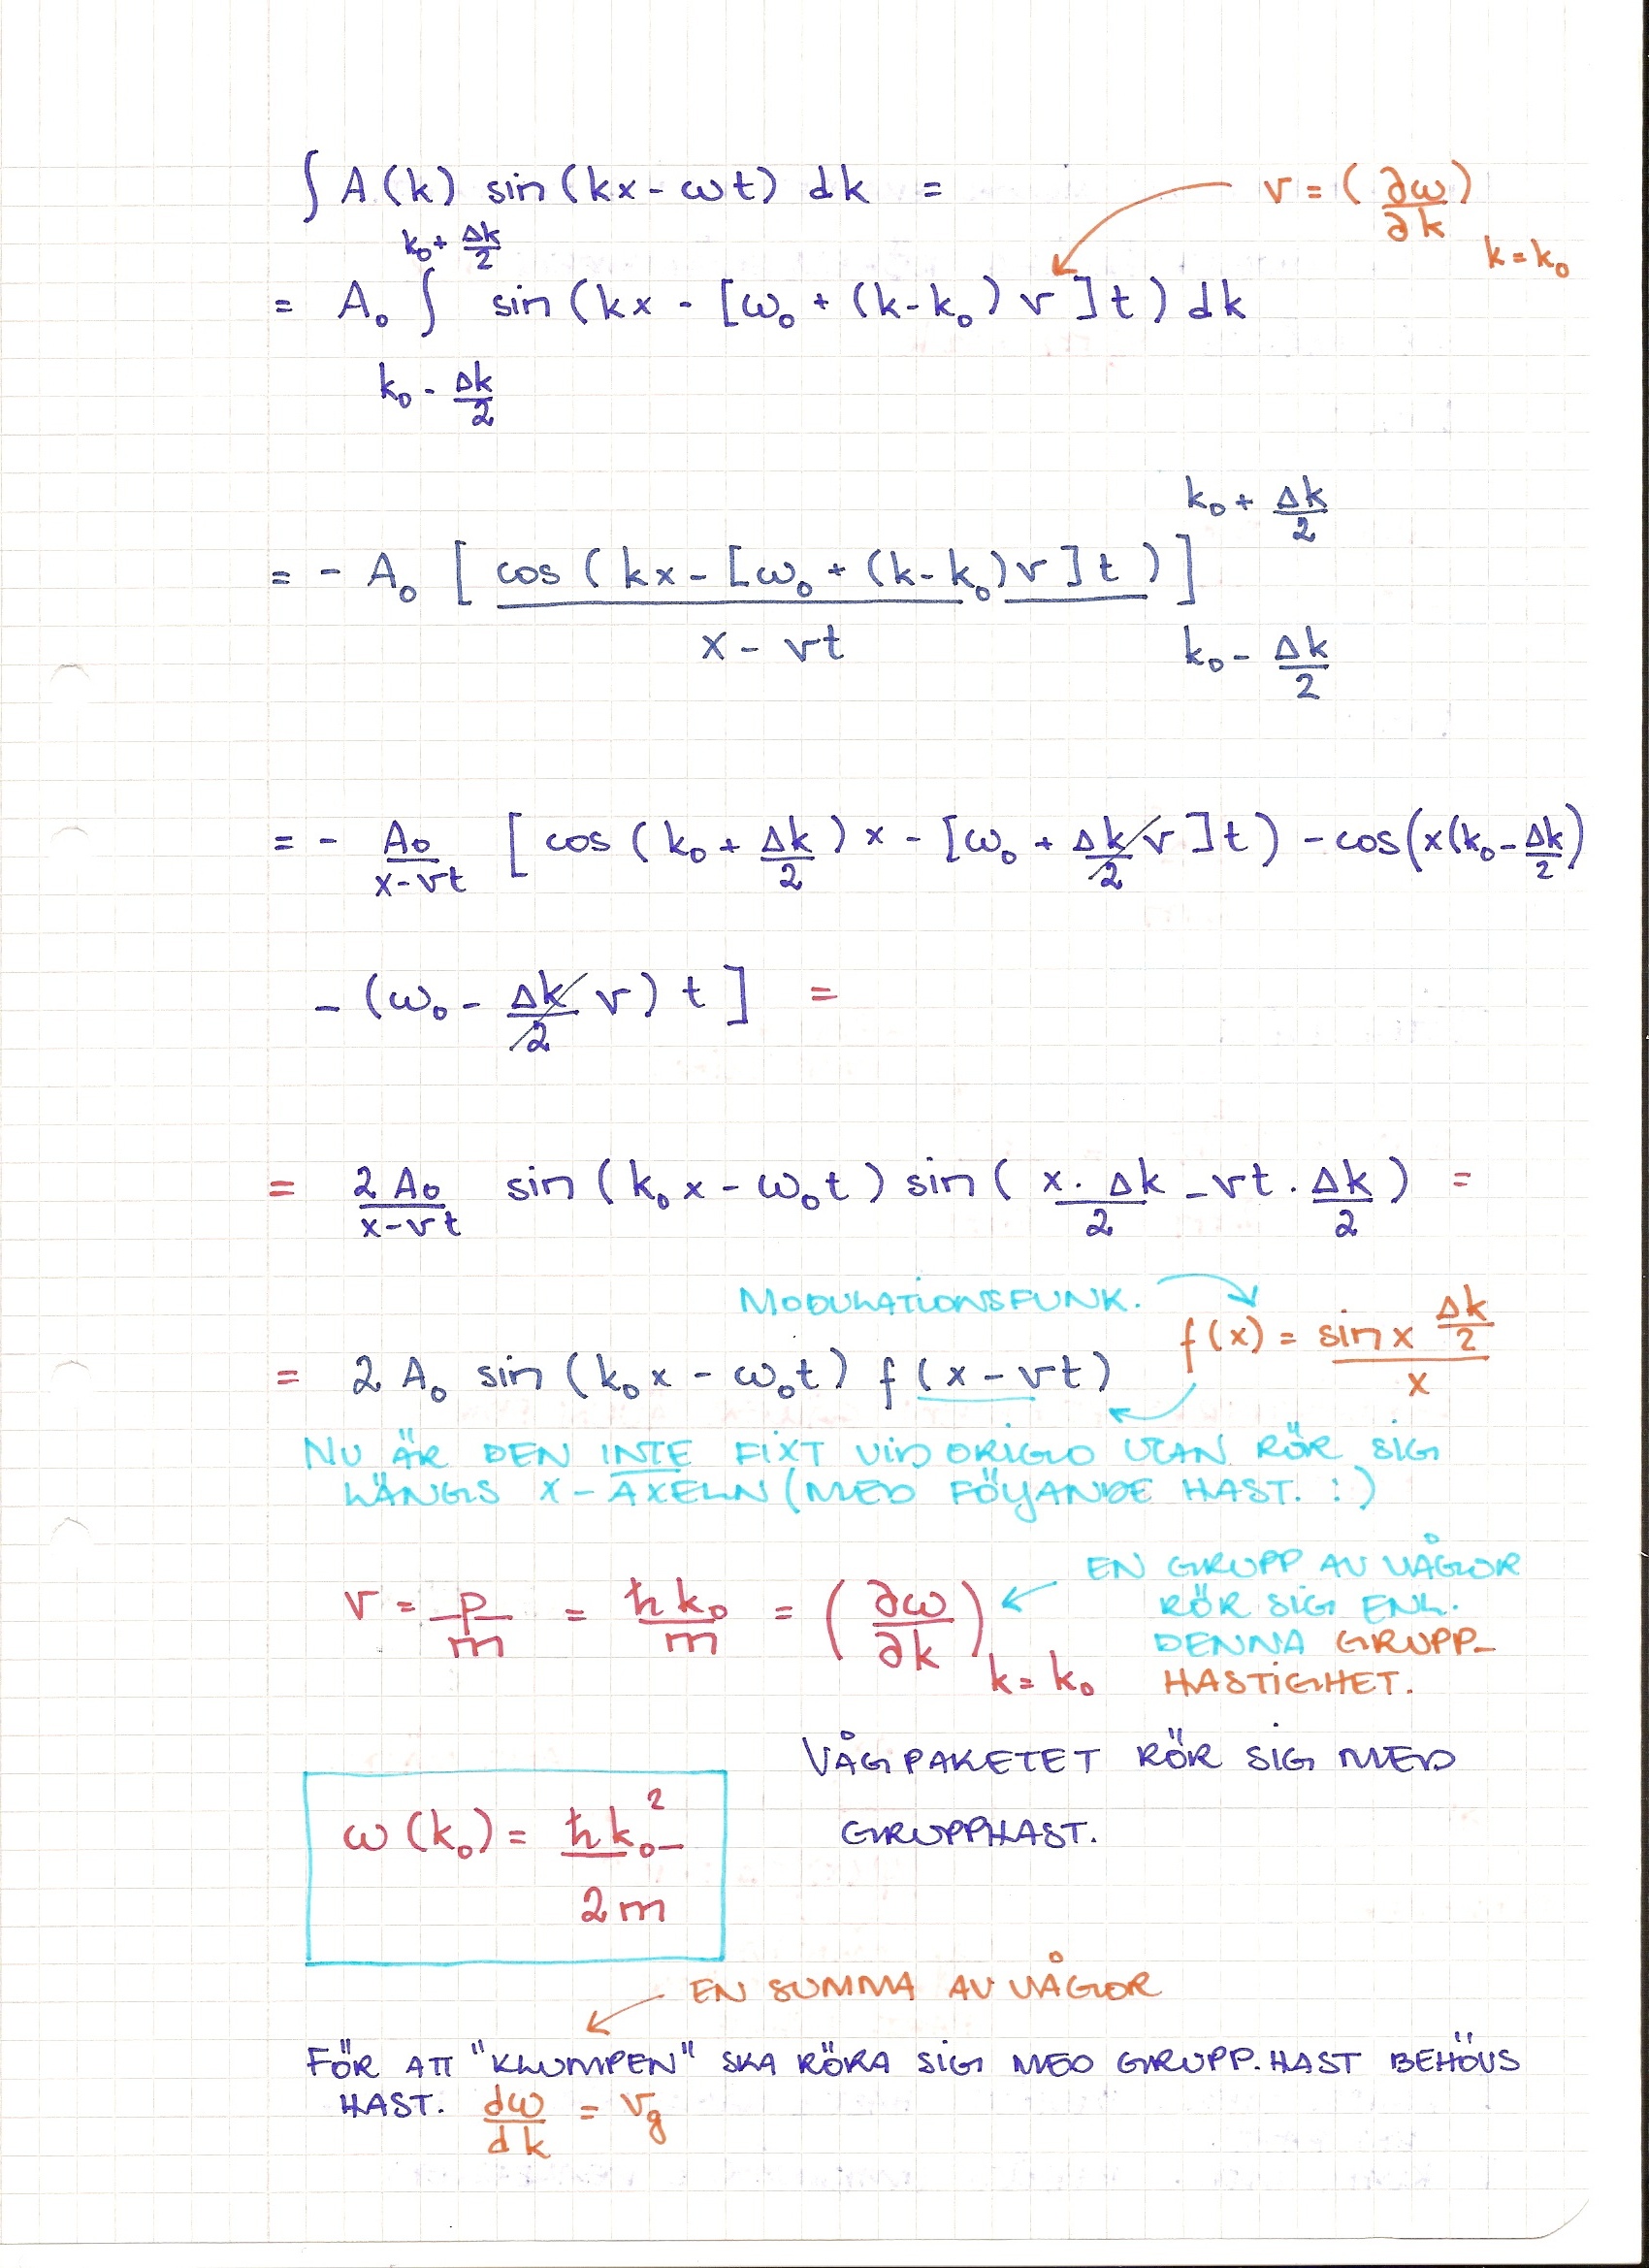 ∫ A(k) sin(kx - ωt) dk =
v = (∂ω/∂k) k = k₀
= A₀ ∫ sin(kx - [ω₀ + (k-k₀) v]t) dk
k₀ + Δk/2
k₀ - Δk/2
= - A₀ [ cos(kx - [ω₀ + (k-k₀)v]t) / x - vt ]
k₀ + Δk/2
k₀ - Δk/2
= - A₀/x-vt [ cos(k₀ + Δk/2)x - [ω₀ + Δk/2 v]t) - cos(x(k₀ - Δk/2)
- (ω₀ - Δk/2 v) t ] =
= 2A₀/x-vt sin(k₀x - ω₀t) sin( x·Δk/2 - vt·Δk/2 ) =
MODULATIONSFUNK.
f(x) = sin x Δk/2 / x
= 2A₀ sin(k₀x - ω₀t) f(x - vt)
NU ÄR DEN INTE FIXT VID ORIGIO UTAN RÖR SIG
LÄNGS X-AXELN (MED FÖLJANDE HAST. :)
v = p/m = ħk₀/m = (∂ω/∂k) k = k₀
EN GRUPP AV VÅGOR
RÖR SIG ENL.
DENNA GRUPP-
HASTIGHET.
VÅGPAKETET RÖR SIG MED
GRUPPHAST.
ω(k₀) = ħk₀²/2m
EN SUMMA AV VÅGOR
FÖR ATT "KLUMPEN" SKA RÖRA SIG MED GRUPP.HAST BEHÖVS
HAST. dω/dk = vg